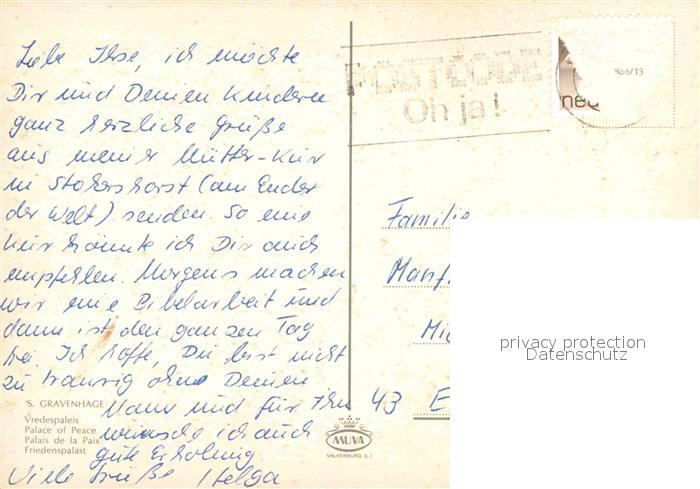 Liebe Ilse, ich möchte
Dir und Deinen Kinderen
ganz herzliche Grüße
aus meiner Mütter-Kur
in (am Ender
der Welt) senden. So eine
Kur könnte ich Dir auch
empfehlen. Morgens machen
wir eine Bibelarbeit und
dann ist den ganzen Tag
frei. Ich hoffe, Du bist nicht
zu traurig ohne Deinen
Mann und für Ihn
wünsche ich auch
gute Erholung.
Viele Grüße Helga
'S. GRAVENHAGE
Vredespaleis
Palace of Peace
Palais de la Paix
Friedenspalast
MUVA
VALKENBURG (L.)
POSTCODE
Oh ja!
ned
Familie
Manf
Mi
43 E
privacy protection
Datenschutz